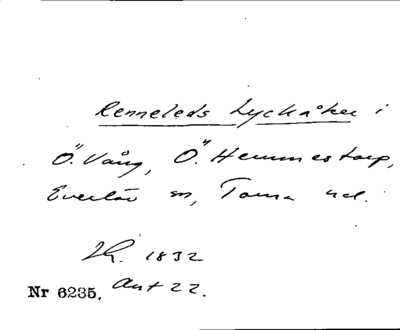 Renneleds Lyckåker i
Ö. Vång, Ö. Hemmestorp,
Everlöv sn, Torna hd.
LR. 1832
Nr 6235, Akt 22.